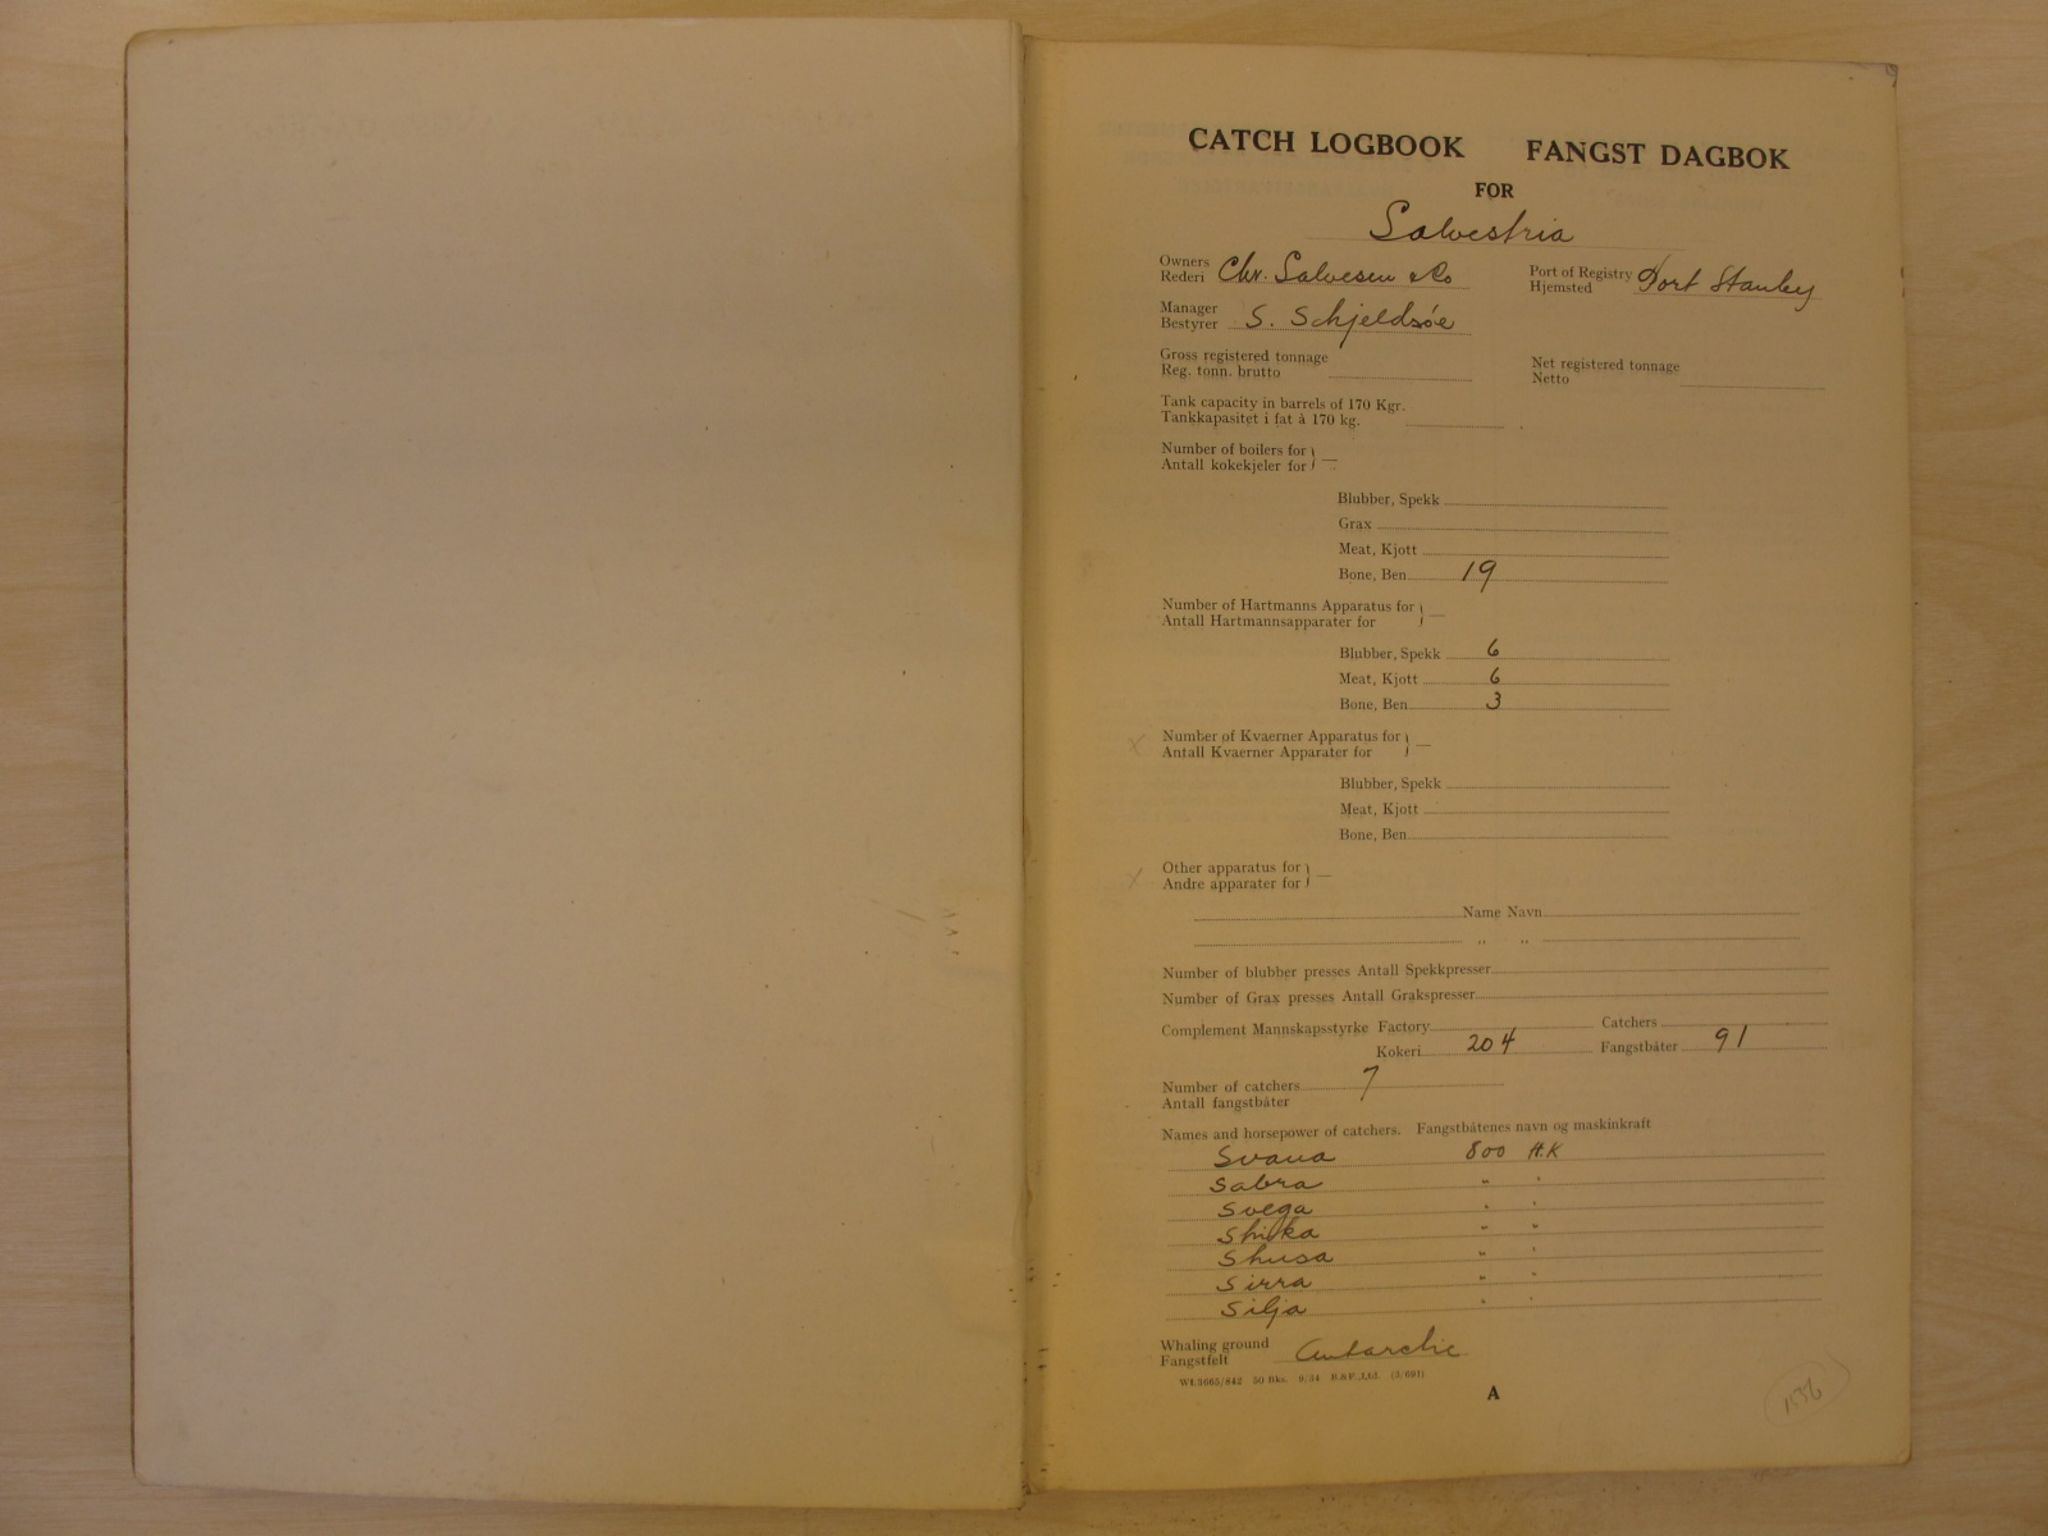 CATCH LOGBOOK FANGST DAGBOK
FOR
Salvestria
Owners
Rederi Chr. Salvesen & Co
Port of Registry
Hjemsted Port Stanley
Manager
Bestyrer S. Schjeldsöe
Gross registered tonnage
Reg. tonn. brutto
Net registered tonnage
Netto
Tank capacity in barrels of 170 Kgr.
Tankkapasitet i fat à 170 kg.
Number of boilers for
Antall kokekjeler for
Blubber, Spekk
Grax
Meat, Kjott
Bone, Ben 19
Number of Hartmanns Apparatus for
Antall Hartmannsapparater for
Blubber, Spekk 6
Meat, Kjott 6
Bone, Ben 3
Number of Kvaerner Apparatus for
Antall Kvaerner Apparater for
Blubber, Spekk
Meat, Kjott
Bone, Ben
Other apparatus for
Andre apparater for
Name Navn
" "
Number of blubber presses Antall Spekkpresser
Number of Grax presses Antall Grakspresser
Complement Mannskapsstyrke Factory Catchers
Kokeri 204 Fangstbåter 91
Number of catchers 7
Antall fangstbåter
Names and horsepower of catchers. Fangstbåtenes navn og maskinkraft
Svana 800 H.K
Sabra " "
Svega " "
Shika " "
Shusa " "
Sirra " "
Silja " "
Whaling ground
Fangstfelt Antarctic
Wt.3665/842 50 Bks. 9/34 B.&F.,Ltd. (3/691)
A